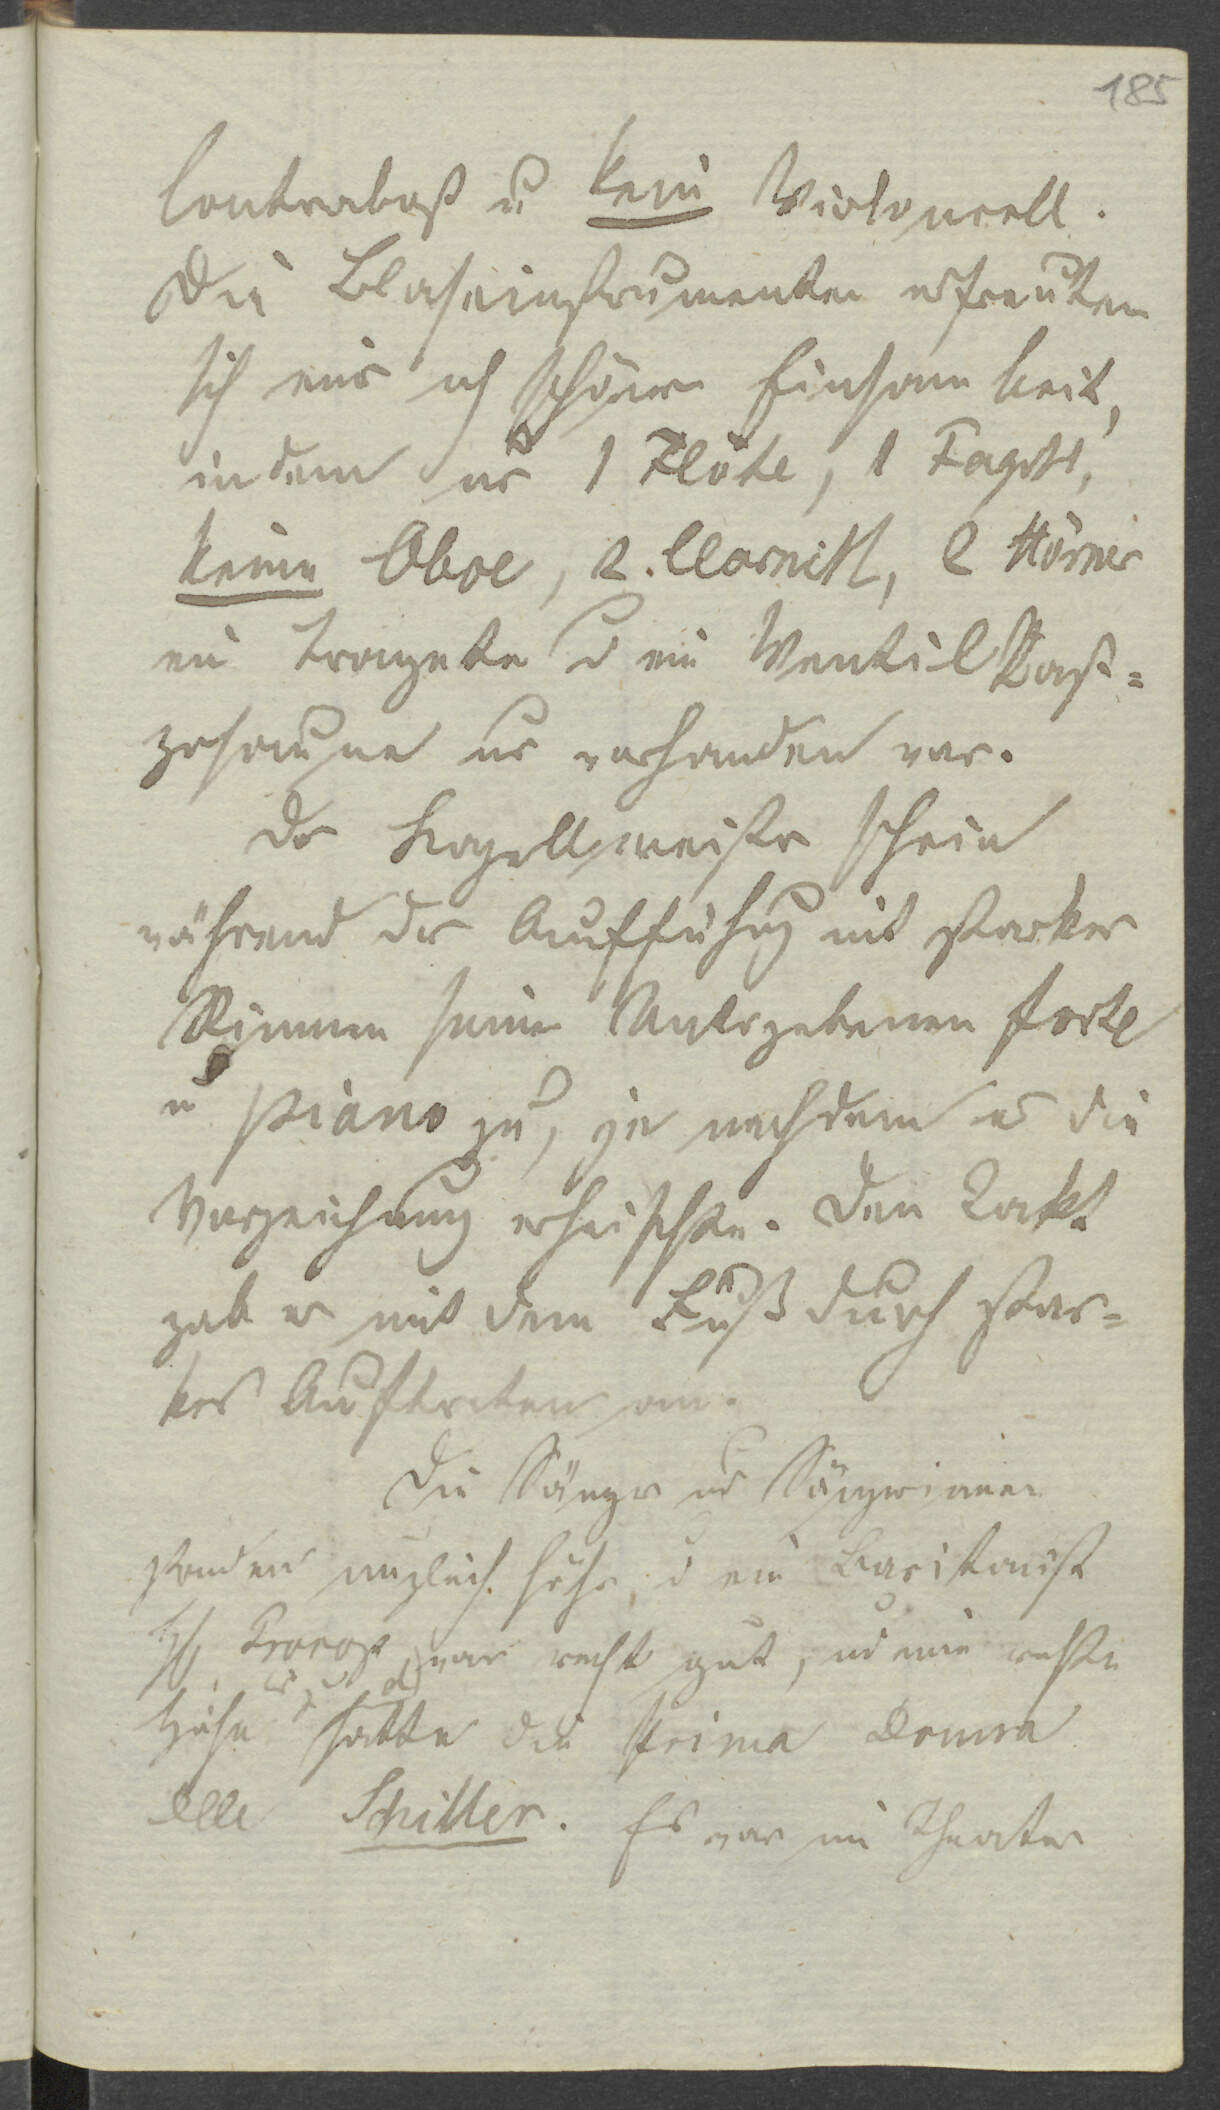 185
Contrabaß u kein Violoncell.
Die Blasinstrumenten erfreuten
sich einer schönen Einsamkeit,
indem nur 1 Flöte, 1 Fagott,
keine Oboe, 2. Clarnitt, 2 Hörner
ein Trompete u ein Ventil Baß=
posaune nur vorhanden war.
Der Kapellmeister schrie
während der Aufführung mit starker
Stimme seinen Untergebenen forte
u piano zu, je nachdem es die
Vorzeichnung erheischte. Den Takt
gab er mit dem Fuß durch star=
kes Auftreten an.
Die Sänger und Sängerinnen
standen ungleich höher, u ein Baritonist
H. war recht gut, und eine
Höhe hatte die Prima Donna
Dlle Schiller. Es war im Theater